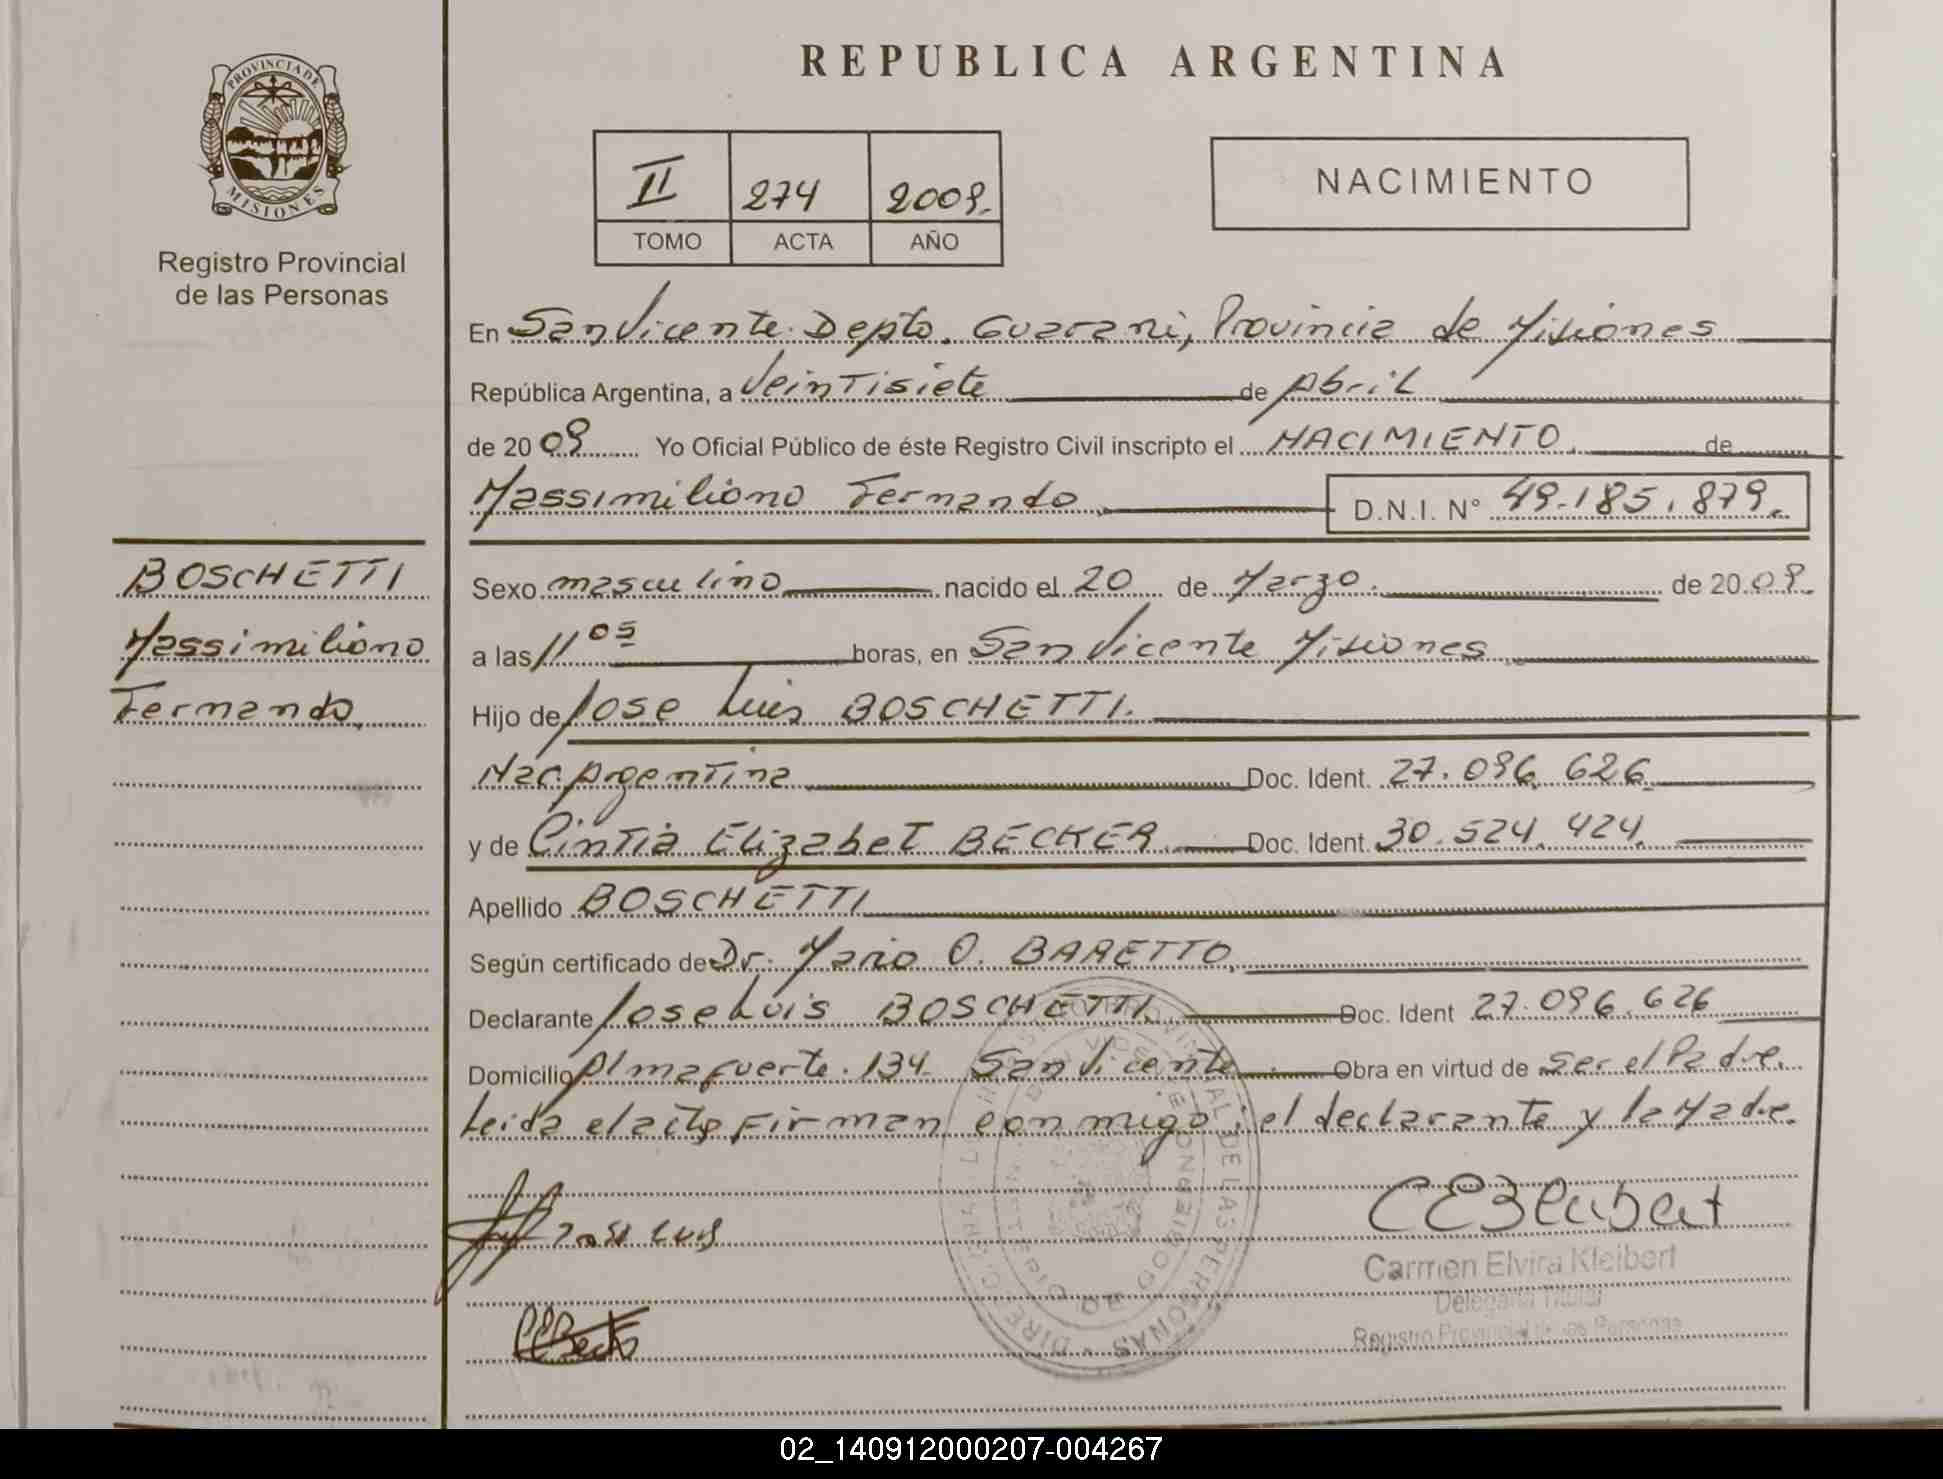 REPUBLICA ARGENTINA
PROVINCIA DE
MISIONES
Registro Provincial
de las Personas
II 274 2009.
TOMO ACTA AÑO
NACIMIENTO
En San Vicente. Depto. Guarani, Provincia de Misiones
República Argentina, a Veintisiete de Abril
de 20 09 Yo Oficial Público de éste Registro Civil inscripto el NACIMIENTO. de
Massimiliano Fernando D.N.I. N° 49.185.879.
BOSCHETTI
Massimiliano
Fernando.
Sexo masculino nacido el 20 de Marzo. de 20 09.
a las 11 05 horas, en San Vicente Misiones
Hijo de Jose Luis BOSCHETTI.
Nac. Argentina Doc. Ident. 27.096.626
y de Cintia Elizabet BECKER Doc. Ident. 30.524.424.
Apellido BOSCHETTI
Según certificado de Dr. Mario O. BARETTO.
Declarante Jose Luis BOSCHETTI. Doc. Ident 27.096.626
Domicilio Almafuerte. 134 San Vicente. Obra en virtud de ser el Padre.
Leida el acta firman conmigo: el declarante y la Madre.
Jose Luis
Carmen Elvira Kleibert
Delegada Titular
Registro Provincial de las Personas
02_140912000207-004267